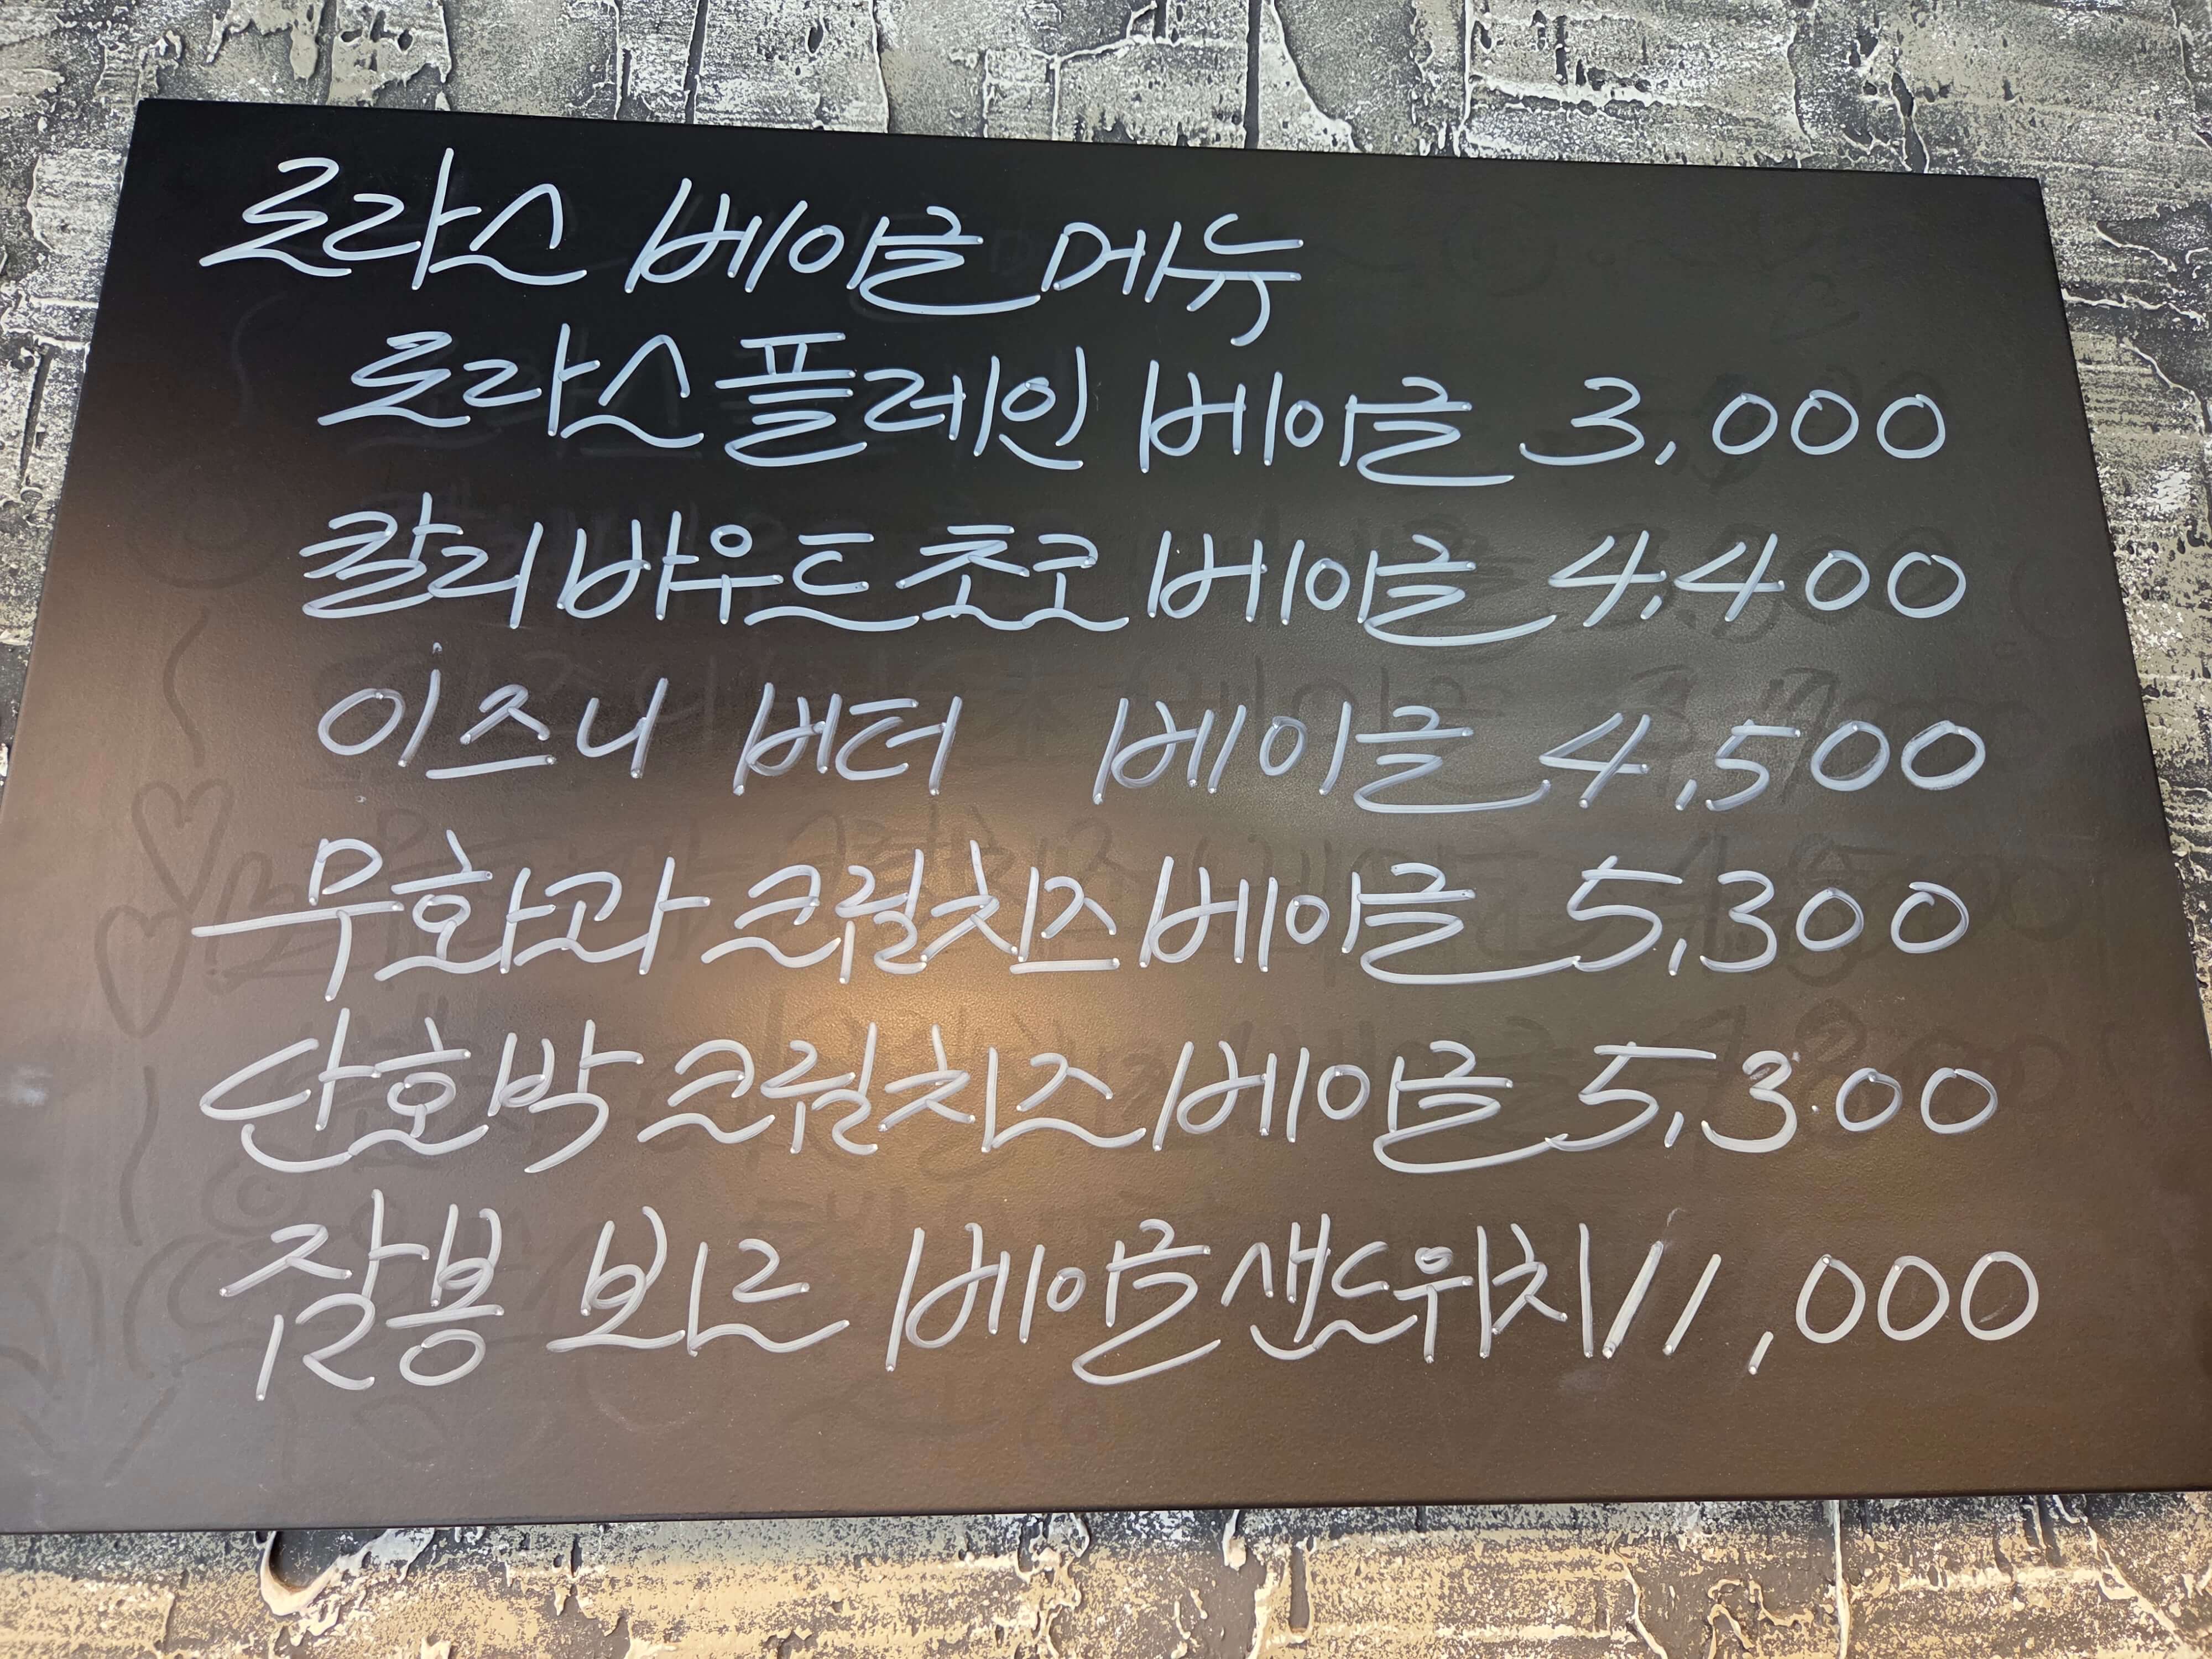 로라스 베이글 메뉴
로라스플레인 베이글 3,000
칼리바우트초코 베이글 4,400
이즈니 버터 베이글 4,500
무화과 크림치즈베이글 5,300
단호박 크림치즈베이글 5,300
잠봉 뵈르 베이글샌드위치 11,000